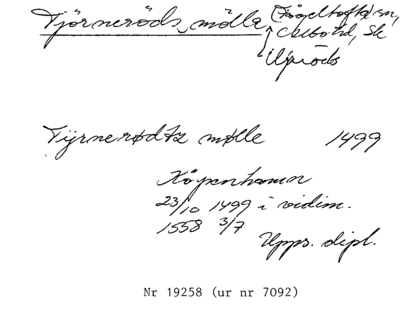 Tjörneröds mölla (Fågeltofta) sn,
Albo hd, Sk
Ujröds
Tyrnerødtz mølle 1499
Köpenhamn
23/10 1499 i vidim.
1558 3/7
Upps. dipl.
Nr 19258 (ur nr 7092)